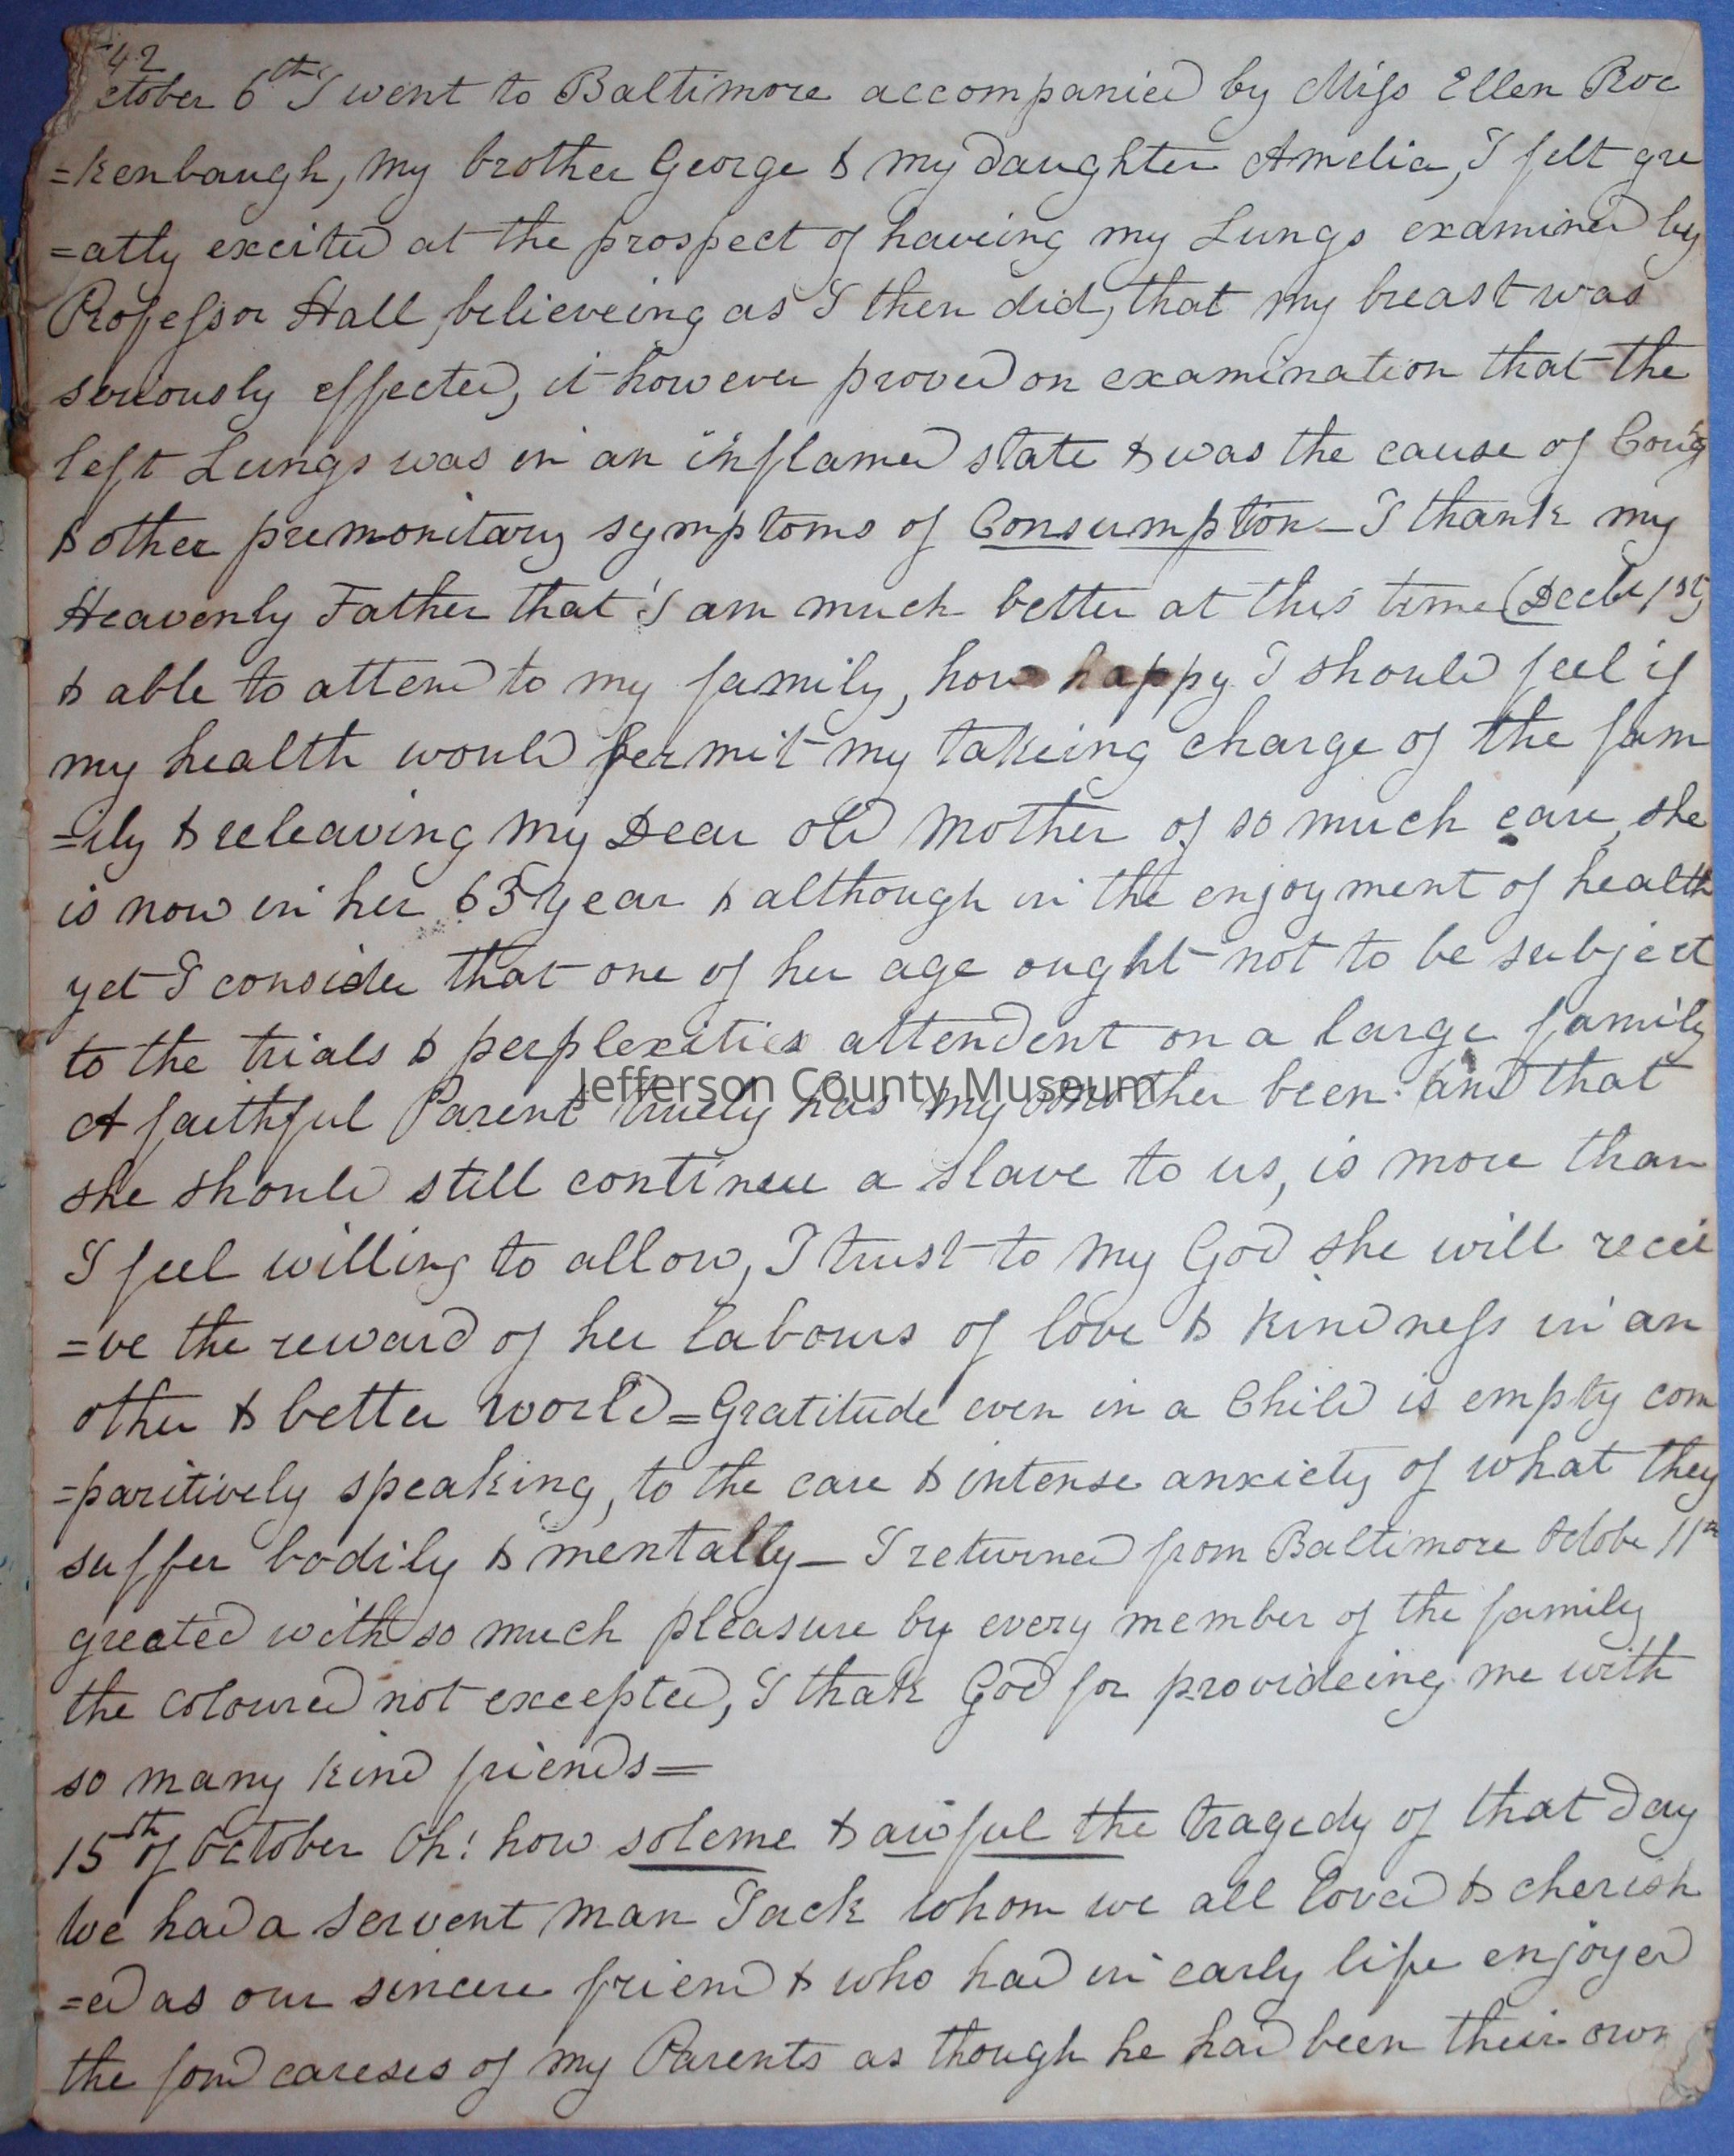 42
ctober 6th I went to Baltimore accompanied by Miss Ellen Roc
=kenbaugh, my brother George & my daughter Amelia, I felt gre
=atly excited at the prospect of haveing my Lungs examined by
Professor Hall, believeing as I then did, that my breast was
seriously effected, it however proved on examination that the
left Lungs was in an inflamed state & was the cause of Coug
& other premonitary symptoms of Consumption— I thank my
Heavenly Father that I am much better at this time (Decbr 1st)
& able to attend to my family, how happy I should feel if
my health would permit my takeing charge of the fam
=ily & releaving my Dear old Mother of so much care, she
is now in her 63 year & although in the enjoyment of health
yet I consider that one of her age ought not to be subject
to the trials & perplexities attendent on a large family
Jefferson County Museum
A faithful Parent truely has my Mother been. and that
she should still continue a slave to us, is more than
I feel willing to allow, I trust to my God she will recei
=ve the reward of her labours of love & kindness in an
other & better world = Gratitude even in a Child is empty com
=paritively speaking, to the care & intense anxiety of what they
suffer bodily & mentally— I returned from Baltimore Octobe 11th
greeted with so much pleasure by every member of the family
the coloured not excepted, I thak God for provideing me with
so many kind friends=
15th of October Oh! how soleme & awful the tragedy of that day
We had a servent man Jack whom we all loved & cherish
=ed as our sincere friend & who had in early life enjoyed
the fond careses of my Parents as though he had been their own